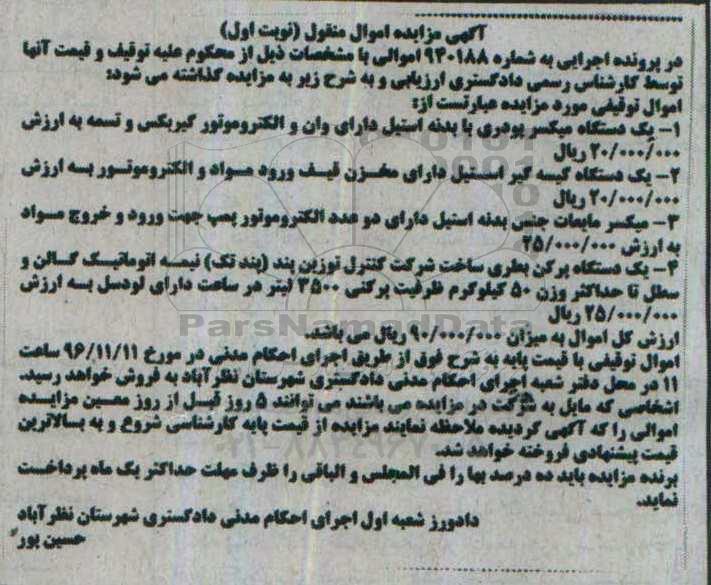 آگهی مزایده اموال منقول (نوبت اول)
در پرونده اجرایی به شماره ۹۴۰۱۸۸ اموالی با مشخصات ذیل از محکوم علیه توقیف و قیمت آنها
توسط کارشناس رسمی دادگستری ارزیابی و به شرح زیر به مزایده گذاشته می شود:
اموال توقیفی مورد مزایده عبارتست از:
۱- یک دستگاه میکسر پودری با بدنه استیل دارای وان و الکتروموتور گیربکس و تسمه به ارزش
۲۰/۰۰۰/۰۰۰ ریال
۲- یک دستگاه کیسه گیر استیل دارای مخزن قیف ورود مواد و الکتروموتور به ارزش
۲۰/۰۰۰/۰۰۰ ریال
۳- میکسر مایعات جنس بدنه استیل دارای دو عدد الکتروموتور پمپ جهت ورود و خروج مواد
به ارزش ۲۵/۰۰۰/۰۰۰
۴- یک دستگاه پرکن بطری ساخت شرکت کنترل توزین پند (پند تک) نیمه اتوماتیک گالن و
سطل تا حداکثر وزن ۵۰ کیلوگرم ظرفیت پرکنی ۳۵۰۰ لیتر در ساعت دارای لودسل به ارزش
۲۵/۰۰۰/۰۰۰ ریال
ارزش کل اموال به میزان ۹۰/۰۰۰/۰۰۰ ریال می باشد.
اموال توقیفی با قیمت پایه به شرح فوق از طریق اجرای احکام مدنی در مورخ ۹۶/۱۱/۱۱ ساعت
۱۱ در محل دفتر شعبه اجرای احکام مدنی دادگستری شهرستان نظرآباد به فروش خواهد رسید.
اشخاصی که مایل به شرکت در مزایده می باشند می توانند ۵ روز قبل از روز معین مزایده
اموالی را که آگهی گردیده ملاحظه نمایند مزایده از قیمت پایه کارشناسی شروع و به بالاترین
قیمت پیشنهادی فروخته خواهد شد.
برنده مزایده باید ده درصد بها را فی المجلس و الباقی را ظرف مهلت حداکثر یک ماه پرداخت
نماید.
دادورز شعبه اول اجرای احکام مدنی دادگستری شهرستان نظرآباد
حسین پور
ParsNamadData